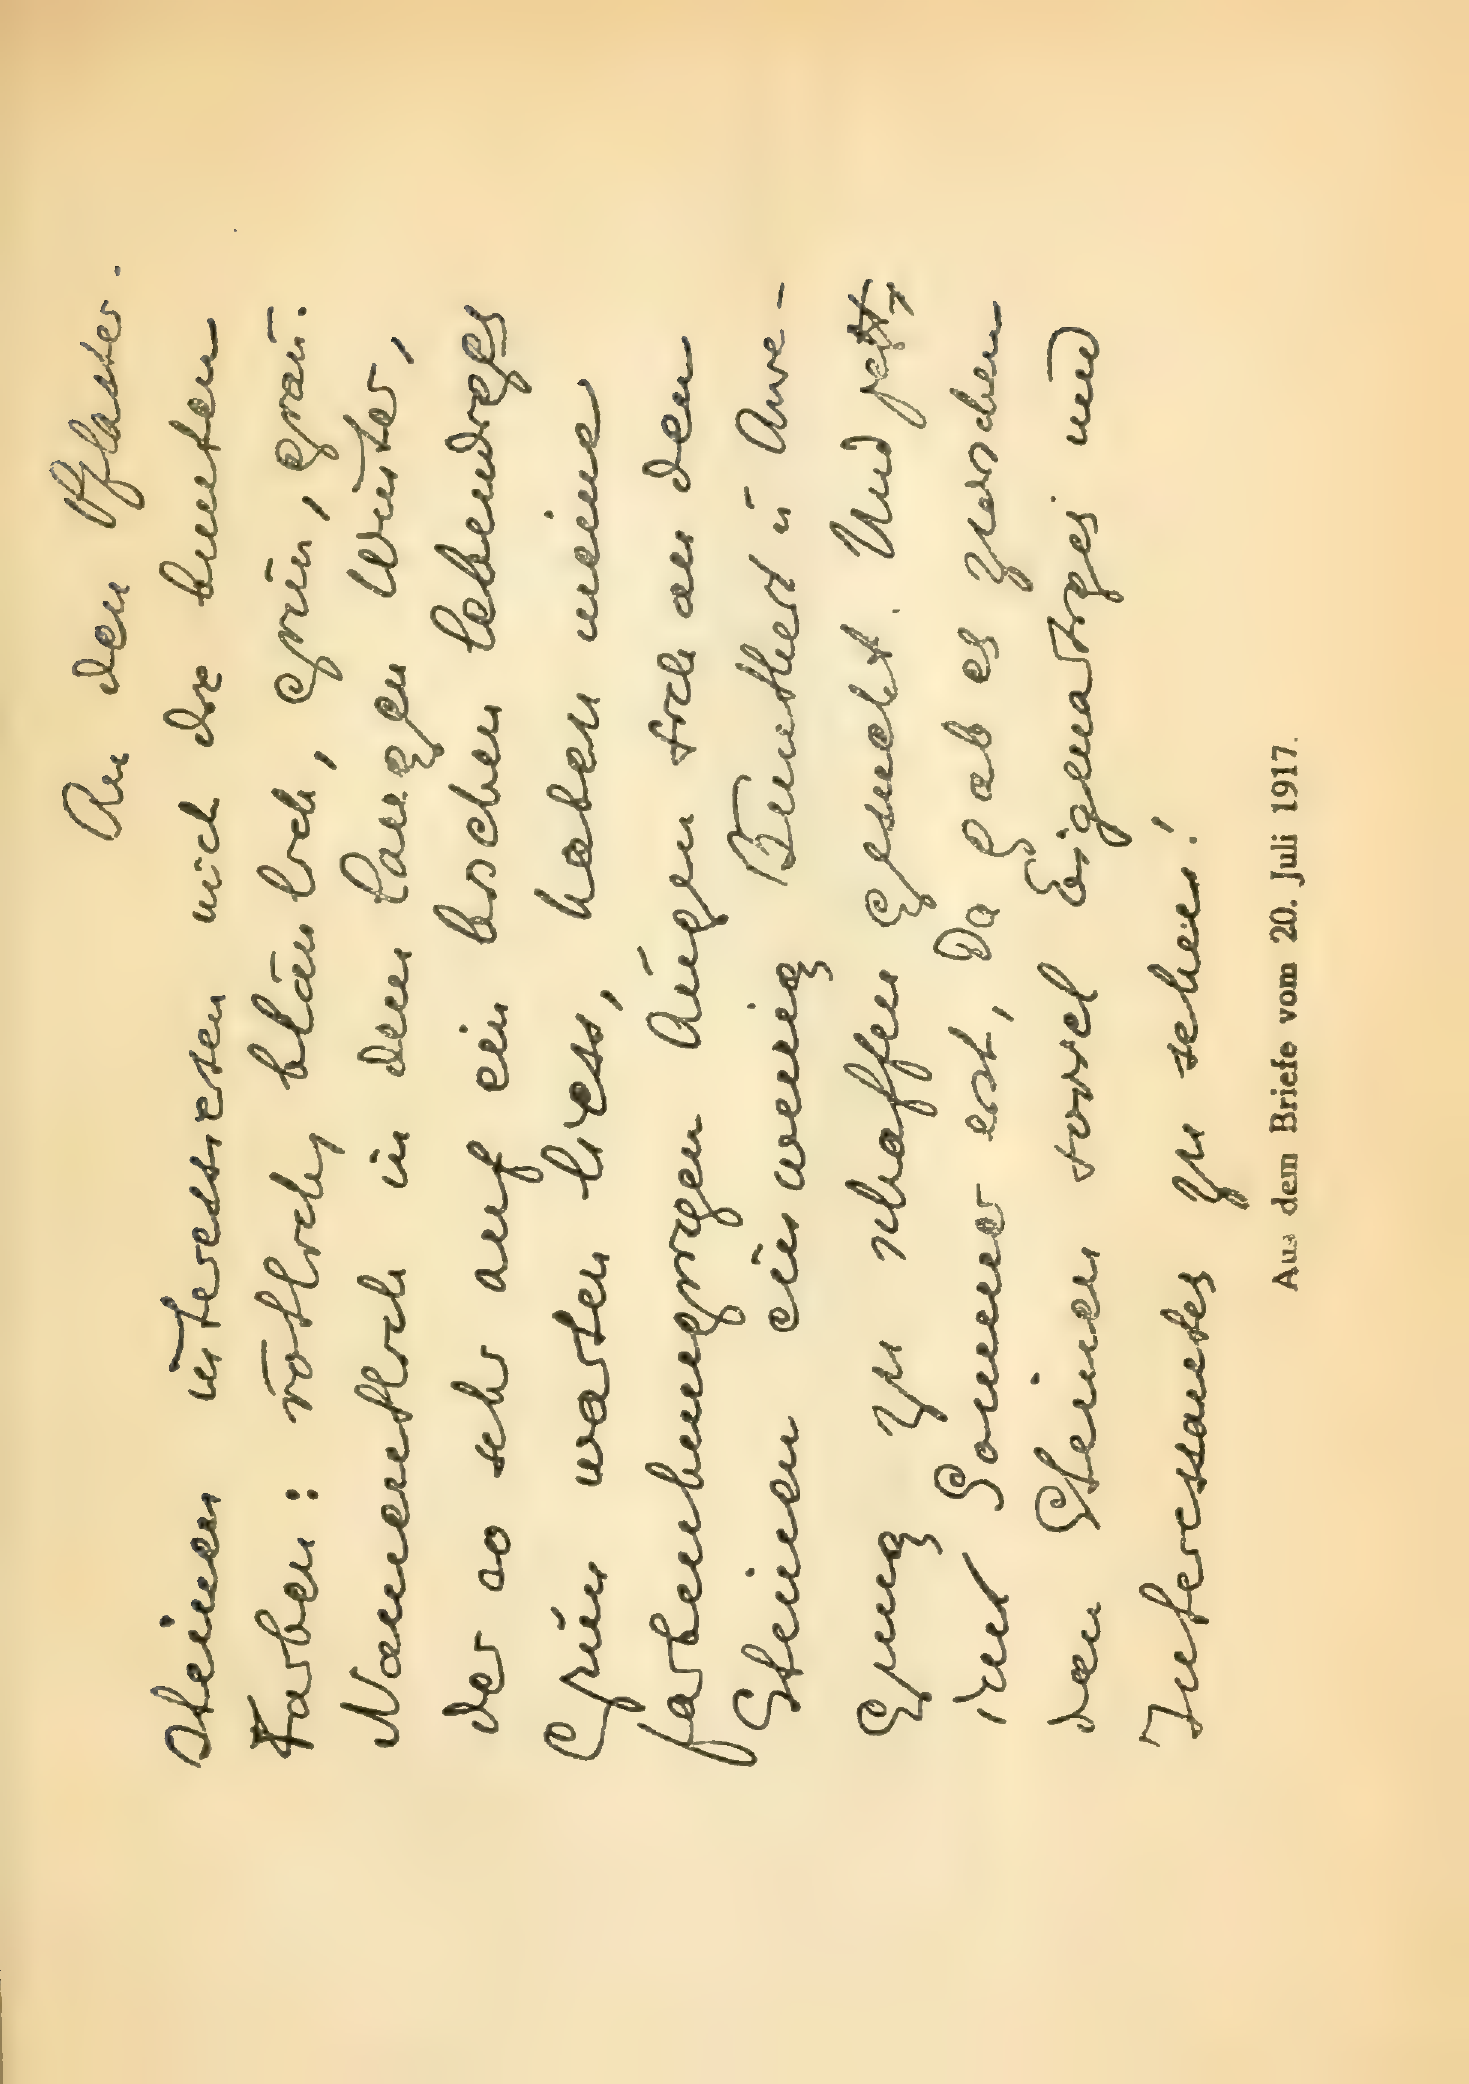 An den Pflaster-
steinen interessieren mich die bunten
Farben: rötlich, bläulich, grün, grau.
Namentlich in dem langen Winter,
der so sehr auf ein bischen lebendiges
Grün warten liess, haben meine
farbenhungrigen Augen sich an den
Steinen ein wenig Buntheit u Anre-
gung zu schaffen gesucht. Und jetzt,
im Sommer erst, da gab es zwischen
den Steinen soviel Eigenartiges und
Interessantes zu sehen!
Aus dem Briefe vom 20. Juli 1917.